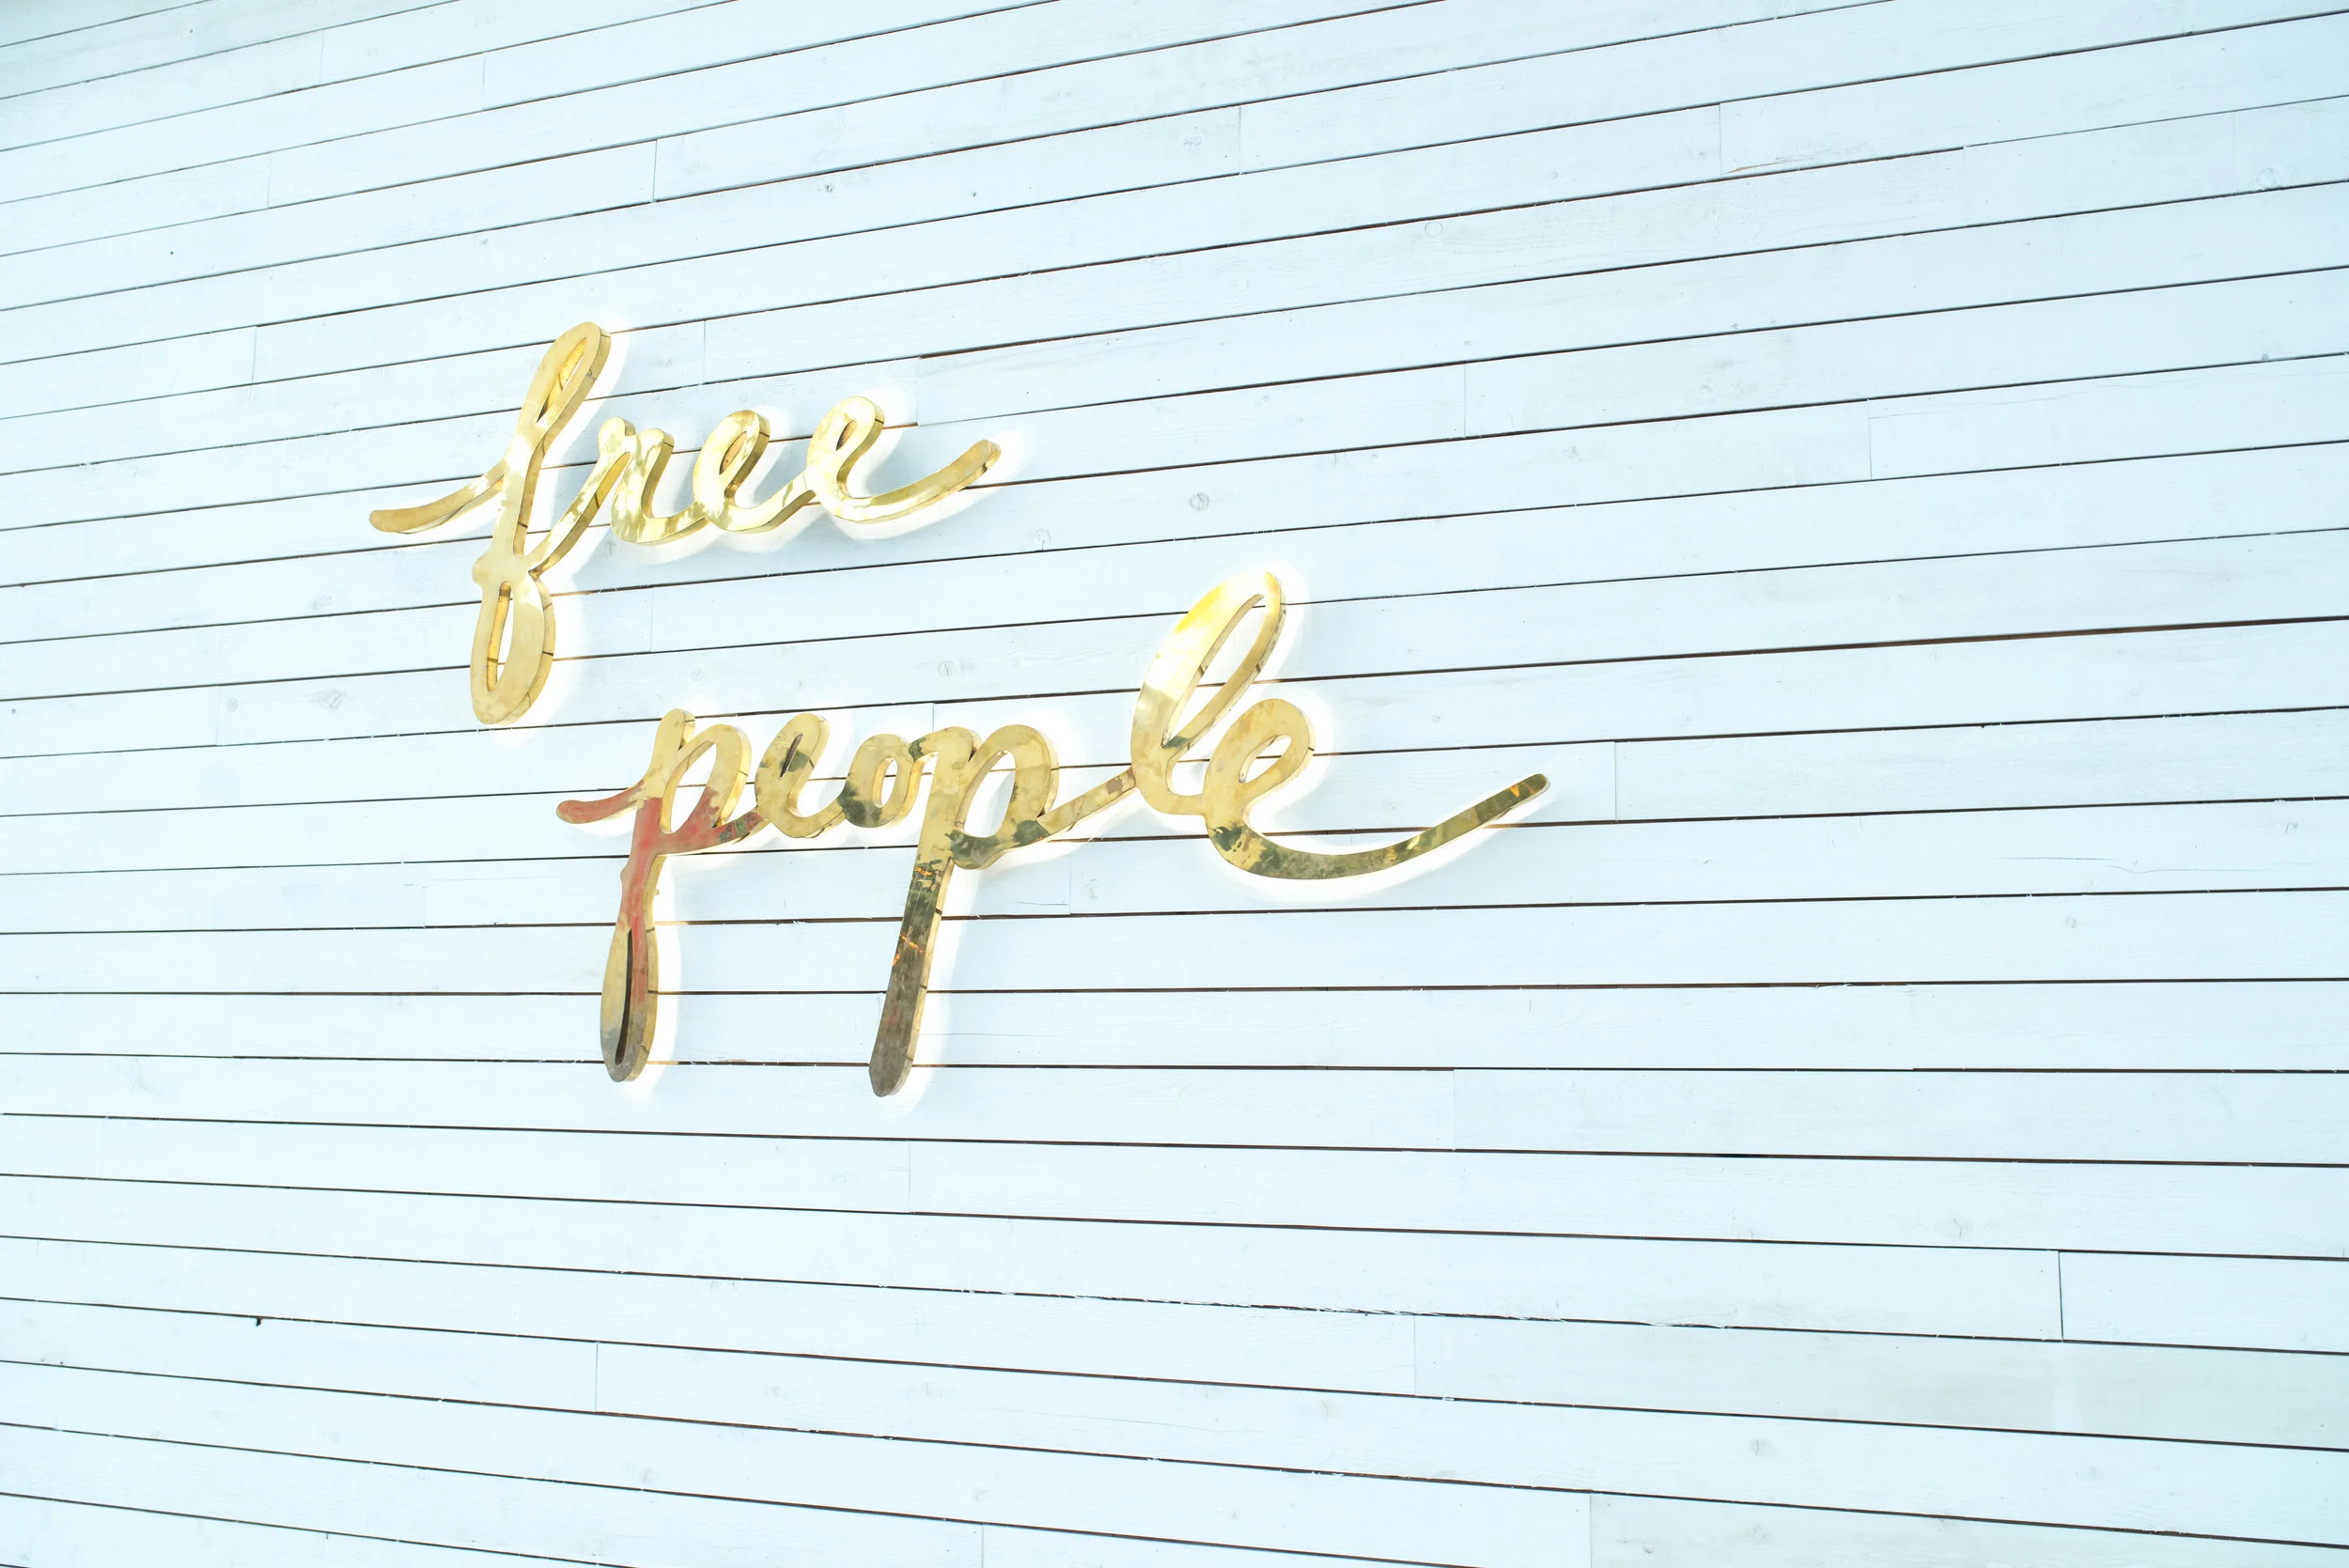 free
people